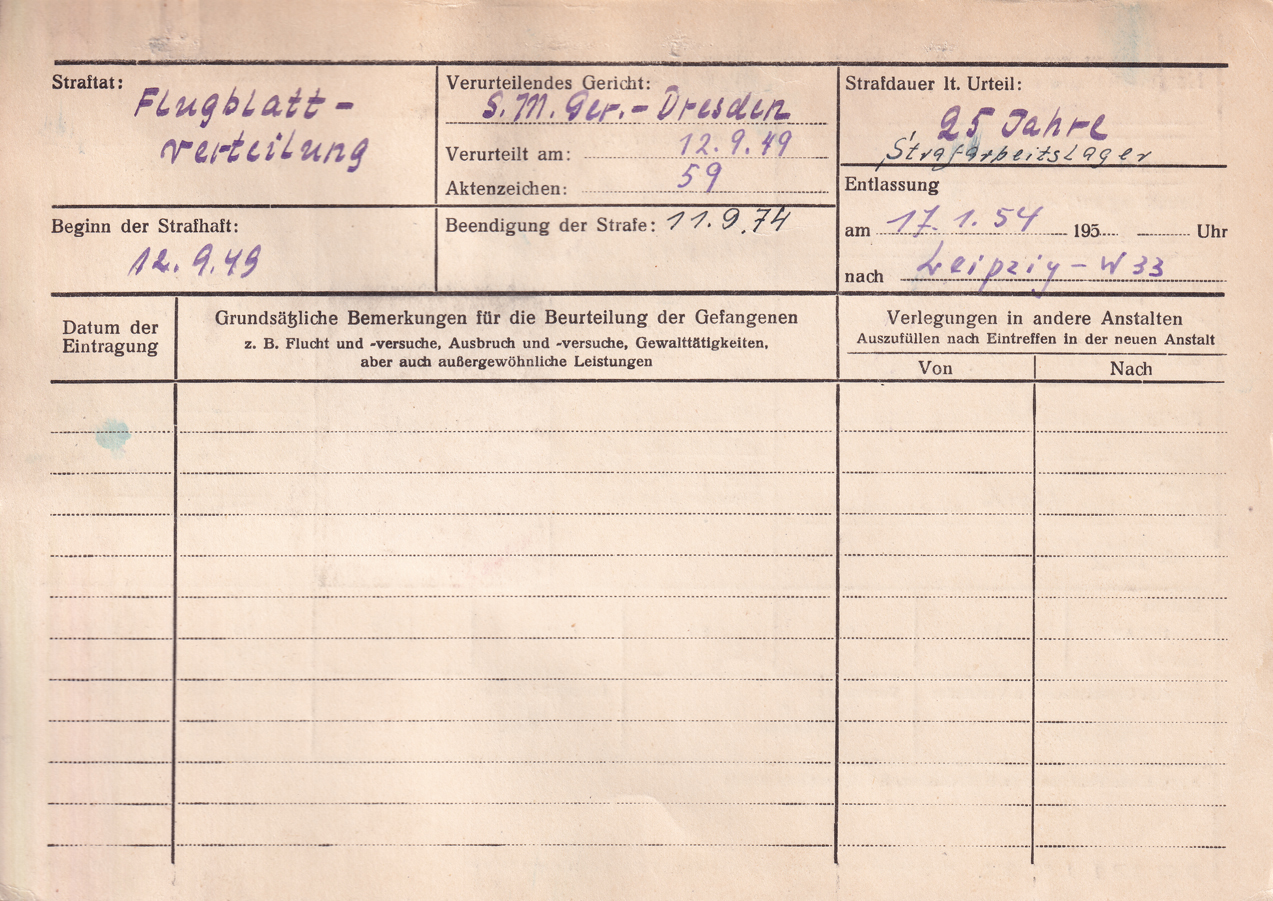 Straftat:
Flugblatt-
verteilung
Verurteilendes Gericht:
S. M. Ger. - Dresden
Verurteilt am: 12. 9. 49
Aktenzeichen: 59
Strafdauer lt. Urteil:
25 Jahre
Strafarbeitslager
Beginn der Strafhaft:
12. 9. 49
Beendigung der Strafe: 11. 9. 74
Entlassung
am 17. 1. 54 195 Uhr
nach Leipzig - W 33
Datum der
Eintragung
Grundsätzliche Bemerkungen für die Beurteilung der Gefangenen
z. B. Flucht und -versuche, Ausbruch und -versuche, Gewalttätigkeiten,
aber auch außergewöhnliche Leistungen
Verlegungen in andere Anstalten
Auszufüllen nach Eintreffen in der neuen Anstalt
Von Nach